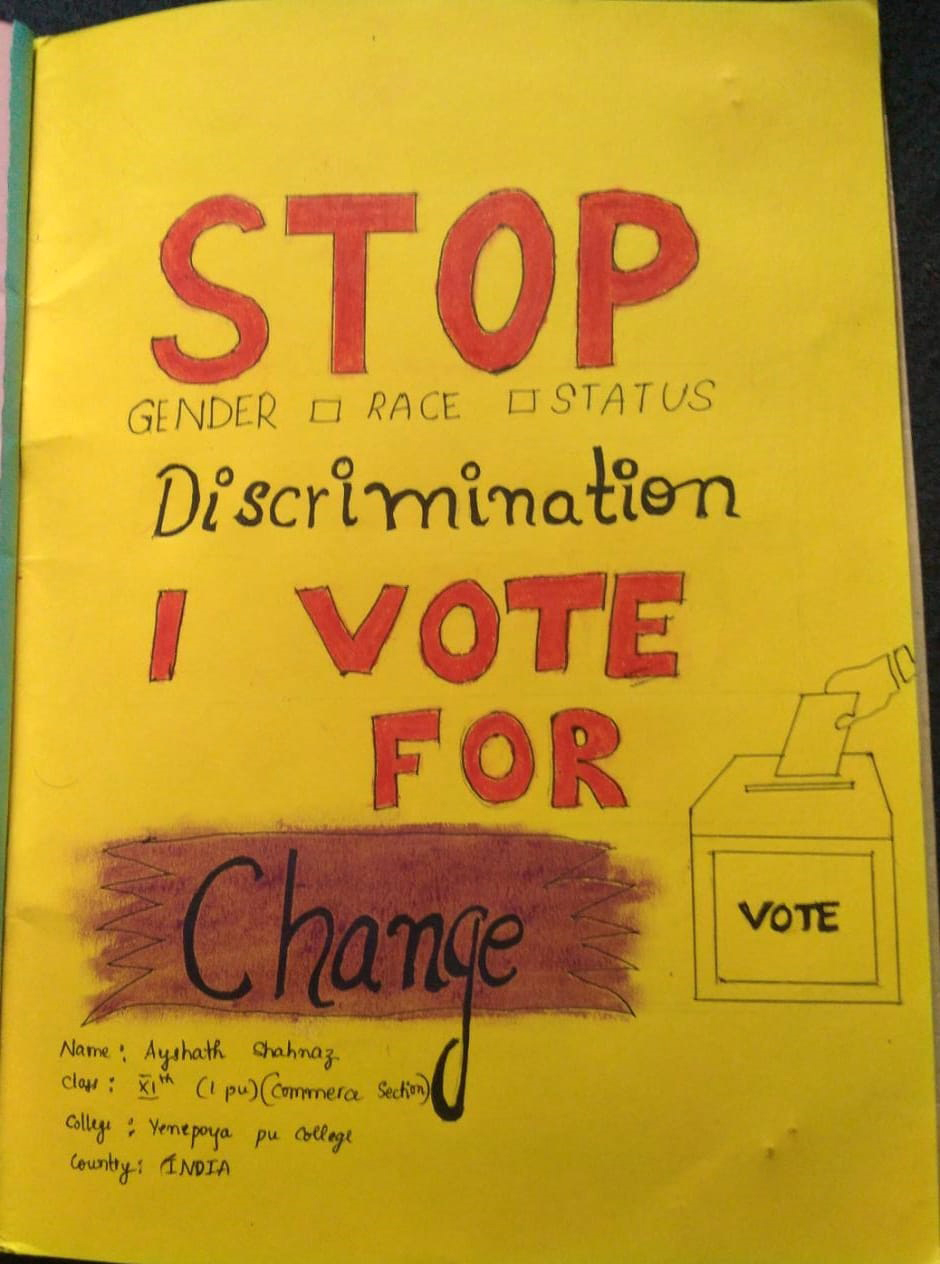 STOP
GENDER □ RACE □ STATUS
Discrimination
I VOTE
FOR
Change
VOTE
Name : Ayshath Shahnaz
Class : XIth (1 pu) (Commerce Section)
College : Yenepoya pu College
Country : INDIA